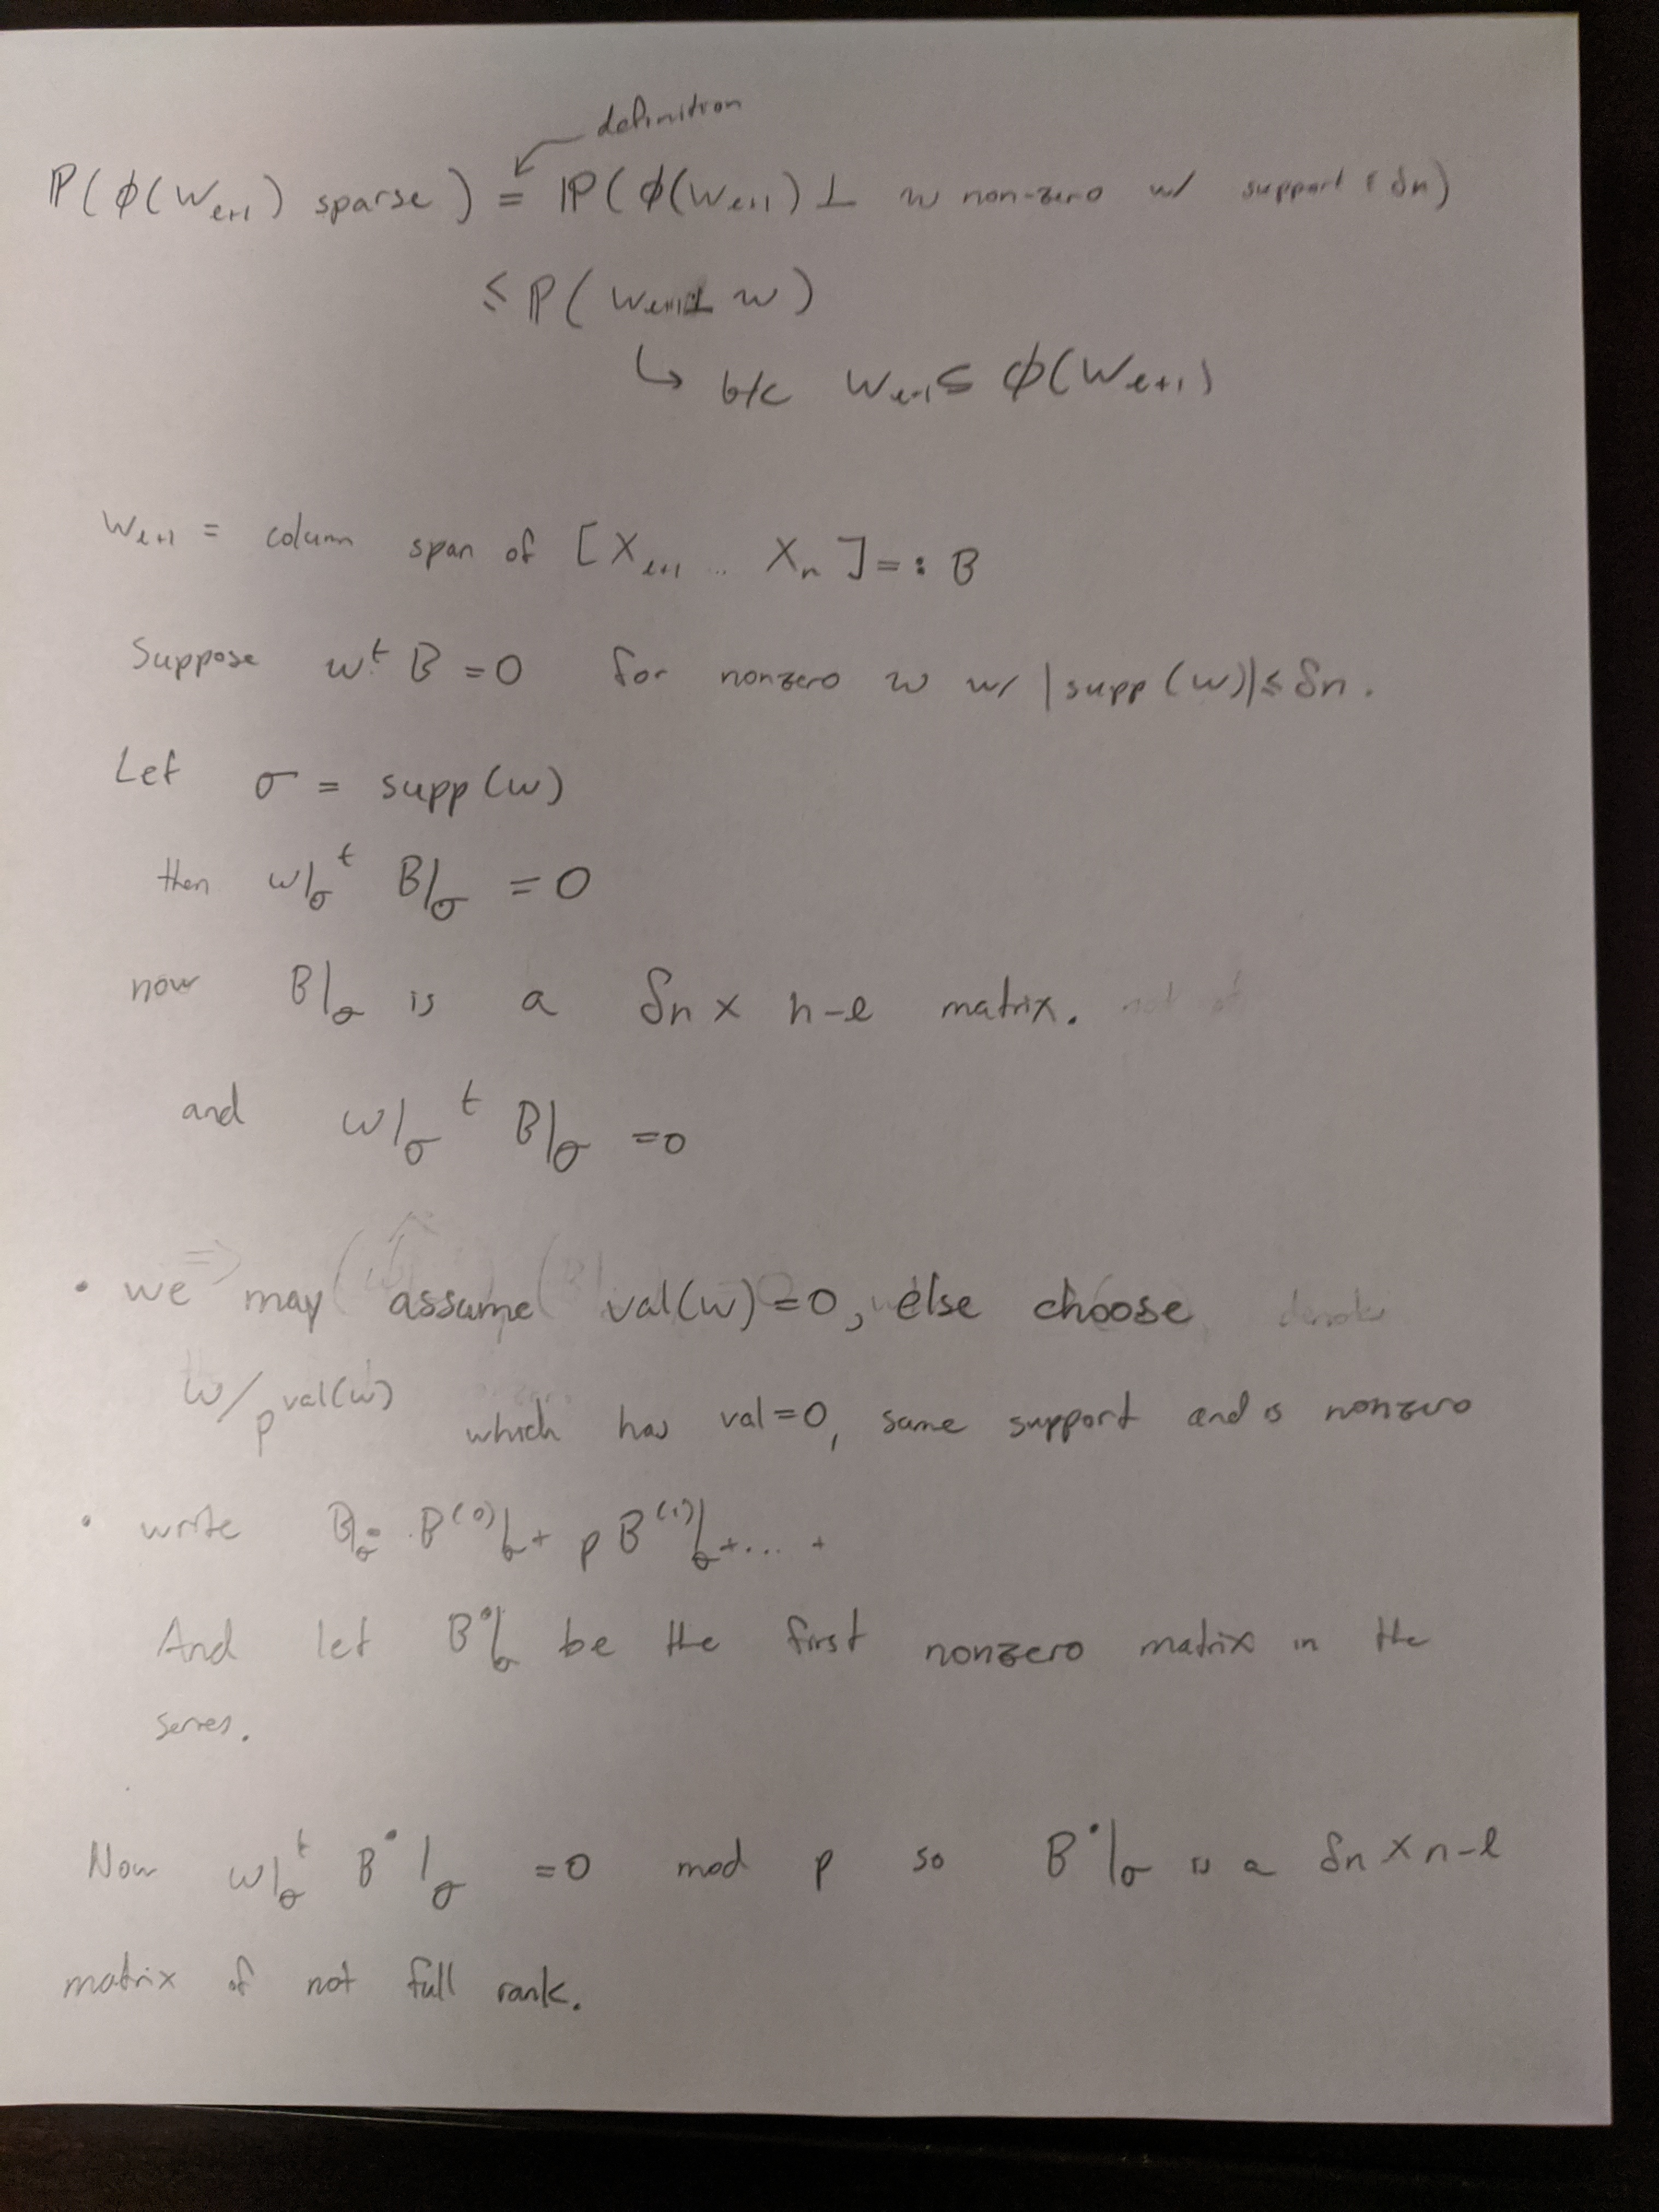 definition
ℙ(ϕ(W_{ℓ+1}) sparse) = ℙ(ϕ(W_{ℓ+1}) ⊥ w non-zero w/ support ≤ δn)
≤ ℙ(W_{ℓ+1} ⊥ w)
↳ b/c W_{ℓ+1} ⊆ ϕ(W_{ℓ+1})
W_{ℓ+1} = column span of [X_{ℓ+1} ... X_n] =: B
Suppose w^t B = 0 for nonzero w w/ |supp(w)| ≤ δn.
Let σ = supp(w)
then w|_σ^t B|_σ = 0
now B|_σ is a δn × n-ℓ matrix.
and w|_σ^t B|_σ = 0
• we may assume val(w) = 0, else choose
w/p^{val(w)} which has val = 0, same support and is nonzero
• write B|_σ = B^{(0)}|_σ + p B^{(1)}|_σ + ... +
And let B^•|_σ be the first nonzero matrix in the
series.
Now w|_σ^t B^•|_σ = 0 mod p so B^•|_σ is a δn × n-ℓ
matrix of not full rank.